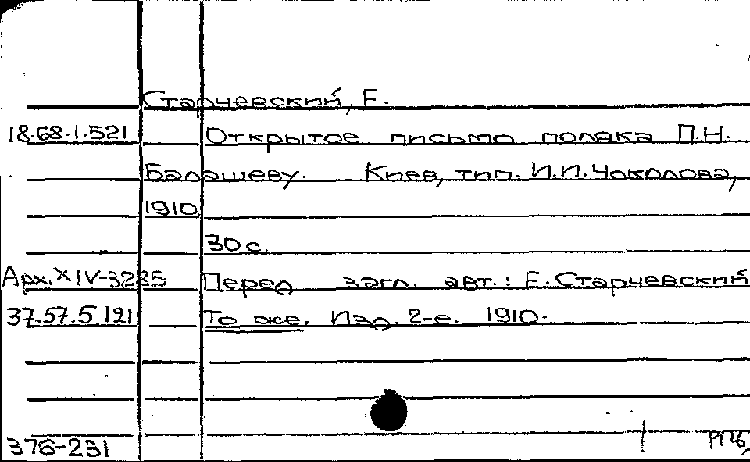 Старчевский, Е.
18.68.1.521 Открытое письмо поляка П.Н.
Балашеву. Киев, тип. И.И.Чоколова,
1910
30 с.
Арх. XIV-3285 Перед загл. авт.: Е.Старчевский
37.57.5.121 То же. Изд. 2-е. 1910.
376-231